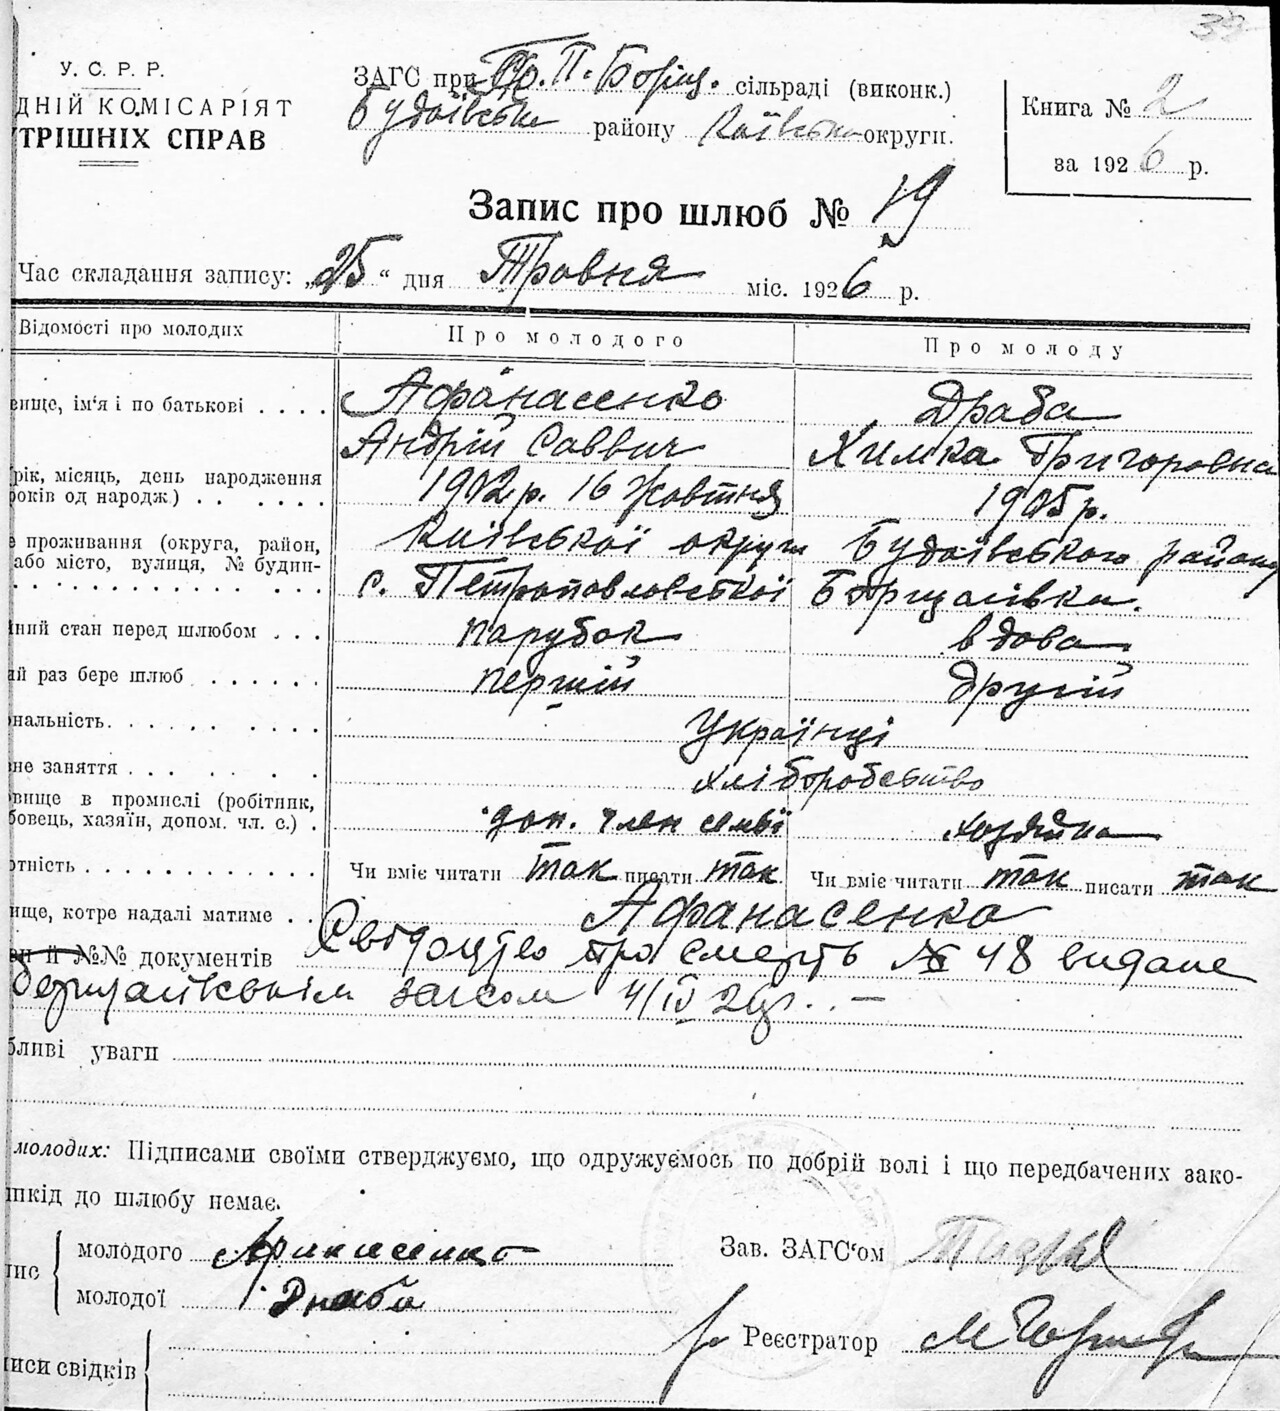 39
У. С. Р. Р.
ДНІЙ КОМІСАРІЯТ
ТРІШНІХ СПРАВ
ЗАГС при П. Борщ. сільраді (виконк.)
Будаївськ району Київськ округи.
Книга № 2
за 1926 р.
Запис про шлюб № 19
Час складання запису: „25“ дня Травня міс. 1926 р.
Відомості про молодих Про молодого Про молоду
вище, ім‘я і по батькові . . . . Афанасенко Драба
Андрій Саввич Химка Григоровна
рік, місяць, день народження 1902 р. 16 Жовтня 1905 р.
років од народж.) . . . . . .
е проживання (округа, район, Київської округи Будаївського району
або місто, вулиця, № будин-
с. Петропавловської Борщагівка.
ний стан перед шлюбом . . . парубок вдова
ий раз бере шлюб . . . . . . перший другий
ональність. . . . . . . . . . Українці
не заняття . . . . . . хліборобство
вище в промислі (робітник, доп. член семьї хозяйка
бовець, хазяїн, допом. чл. с.) .
отність . . . . . . . . . . . . Чи вміє читати так писати так Чи вміє читати так писати так
ище, котре надалі матиме . . Афанасенко
ви й №№ документів Свідоцтво про смерть № 48 видане
загсом 4/IV 26р. . —
бливі уваги
молодих: Підписами своїми стверджуємо, що одружуємось по добрій волі і що передбачених зако-
шкід до шлюбу немає.
молодого Афанасенко Зав. ЗАГС‘ом
пис
молодої Драба
Реєстратор М
писи свідків